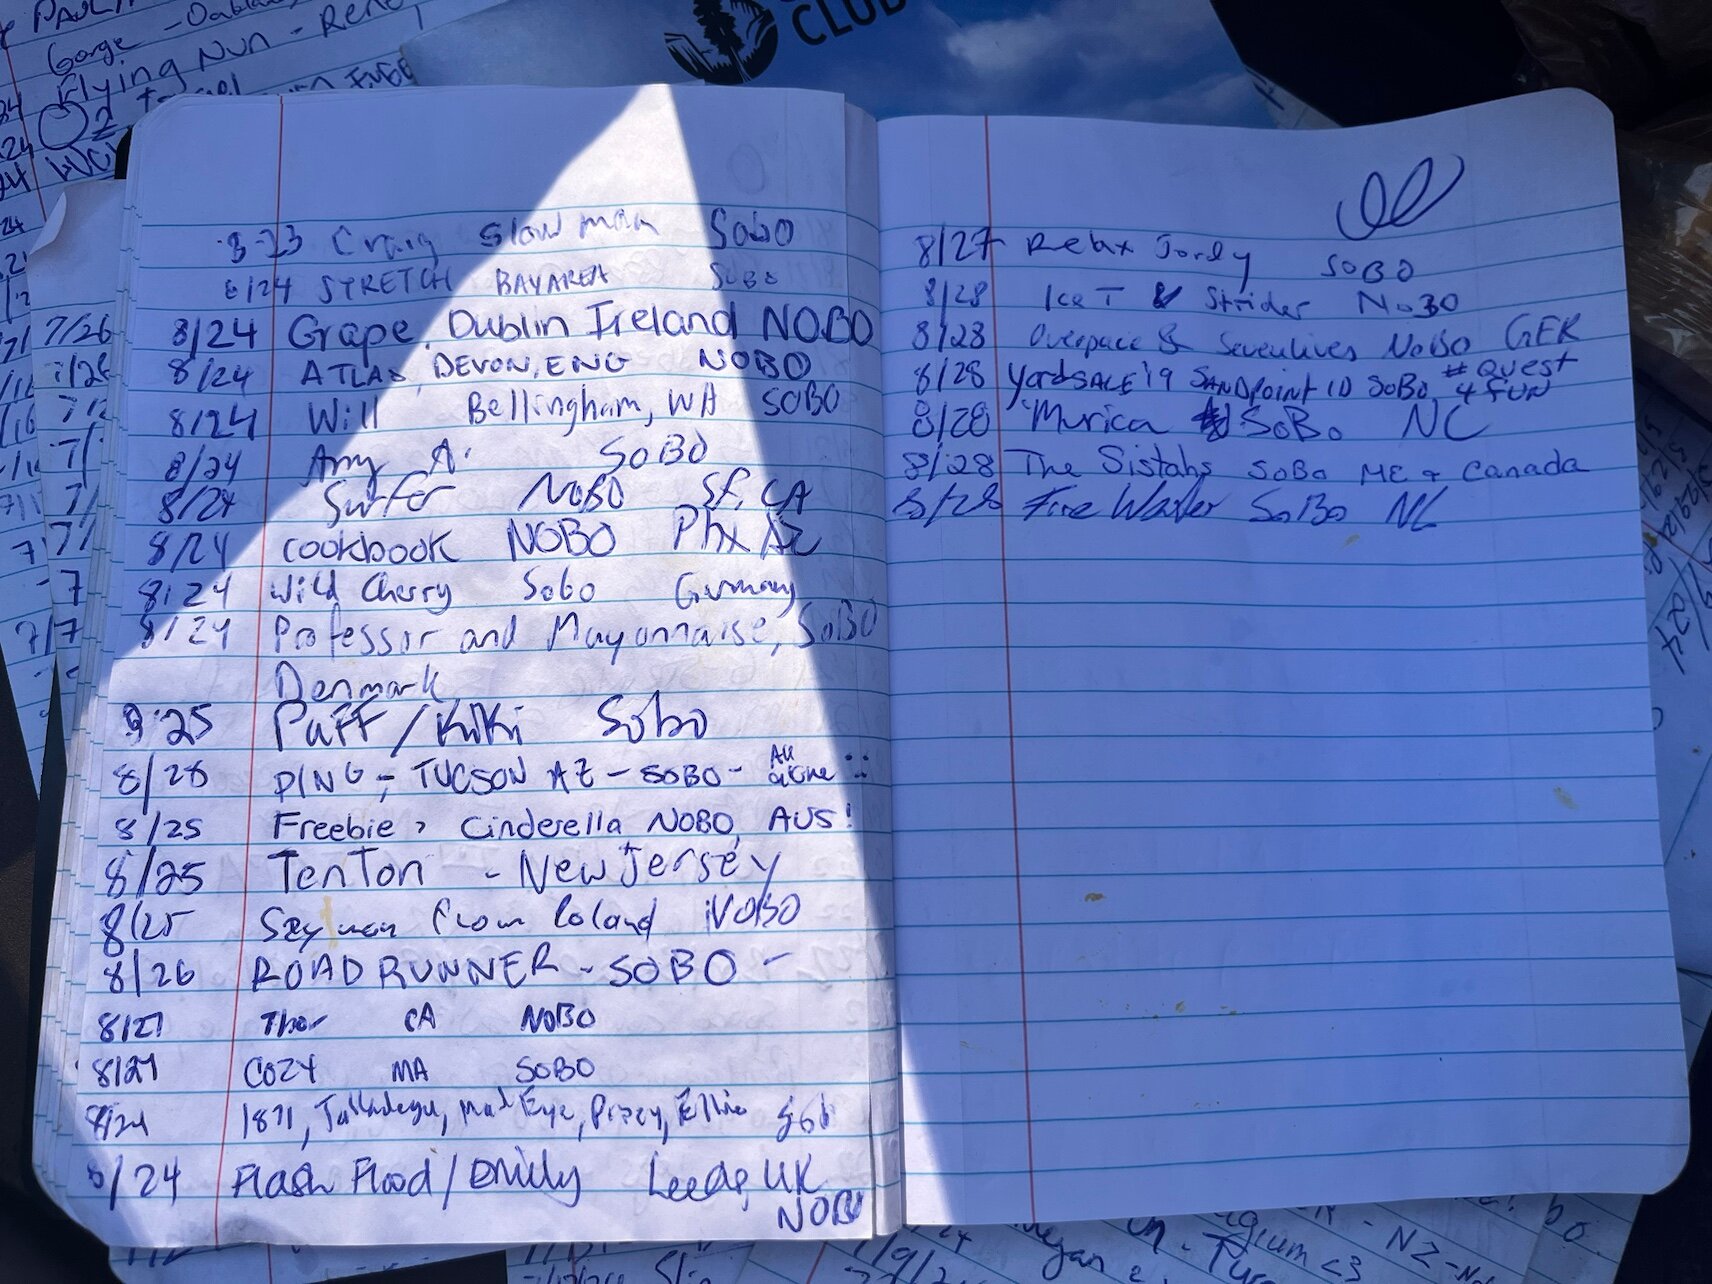 PAUL
George - Oakland
Flying Nun - Reno
O2
CLUB
8-23 Craig Slowman Sobo
8/24 STRETCH BAY AREA SOBO
8/24 Grape, Dublin Ireland NOBO
8/24 ATLAS, DEVON, ENG NOBO
8/24 Will Bellingham, WA SOBO
8/24 Amy A. SOBO
8/24 Surfer NOBO SF, CA
8/24 Cookbook NOBO Phx AZ
8/24 Wild Cherry Sobo Germany
8/24 Professor and Mayonnaise, SoBO
Denmark
8-25 Puff / KiKi Sobo
8/28 PING - TUCSON AZ - SOBO - All alone
8/25 Freebie, Cinderella NOBO, AUS!
8/25 TenTon - New Jersey
8/25 from Poland NOBO
8/26 ROADRUNNER - SOBO -
8/27 Thor CA NOBO
8/27 COZY MA SOBO
1871, Talladega, Mad Eye, Ellie
8/24 Flash Flood / Emily Leeds, UK
NOBO
8/27 Relax SOBO
8/28 Ice T & Strider NoBO
8/28 Overpace & Sevenlives NoBo GER
8/28 YardSALE '19 SANDPOINT ID SOBO # QUEST
4 FUN
8/28 'Murica SoBo NC
8/28 The Sistahs SoBo ME + Canada
8/28 Fire Water SoBo NC
7/26
7/26
7/7